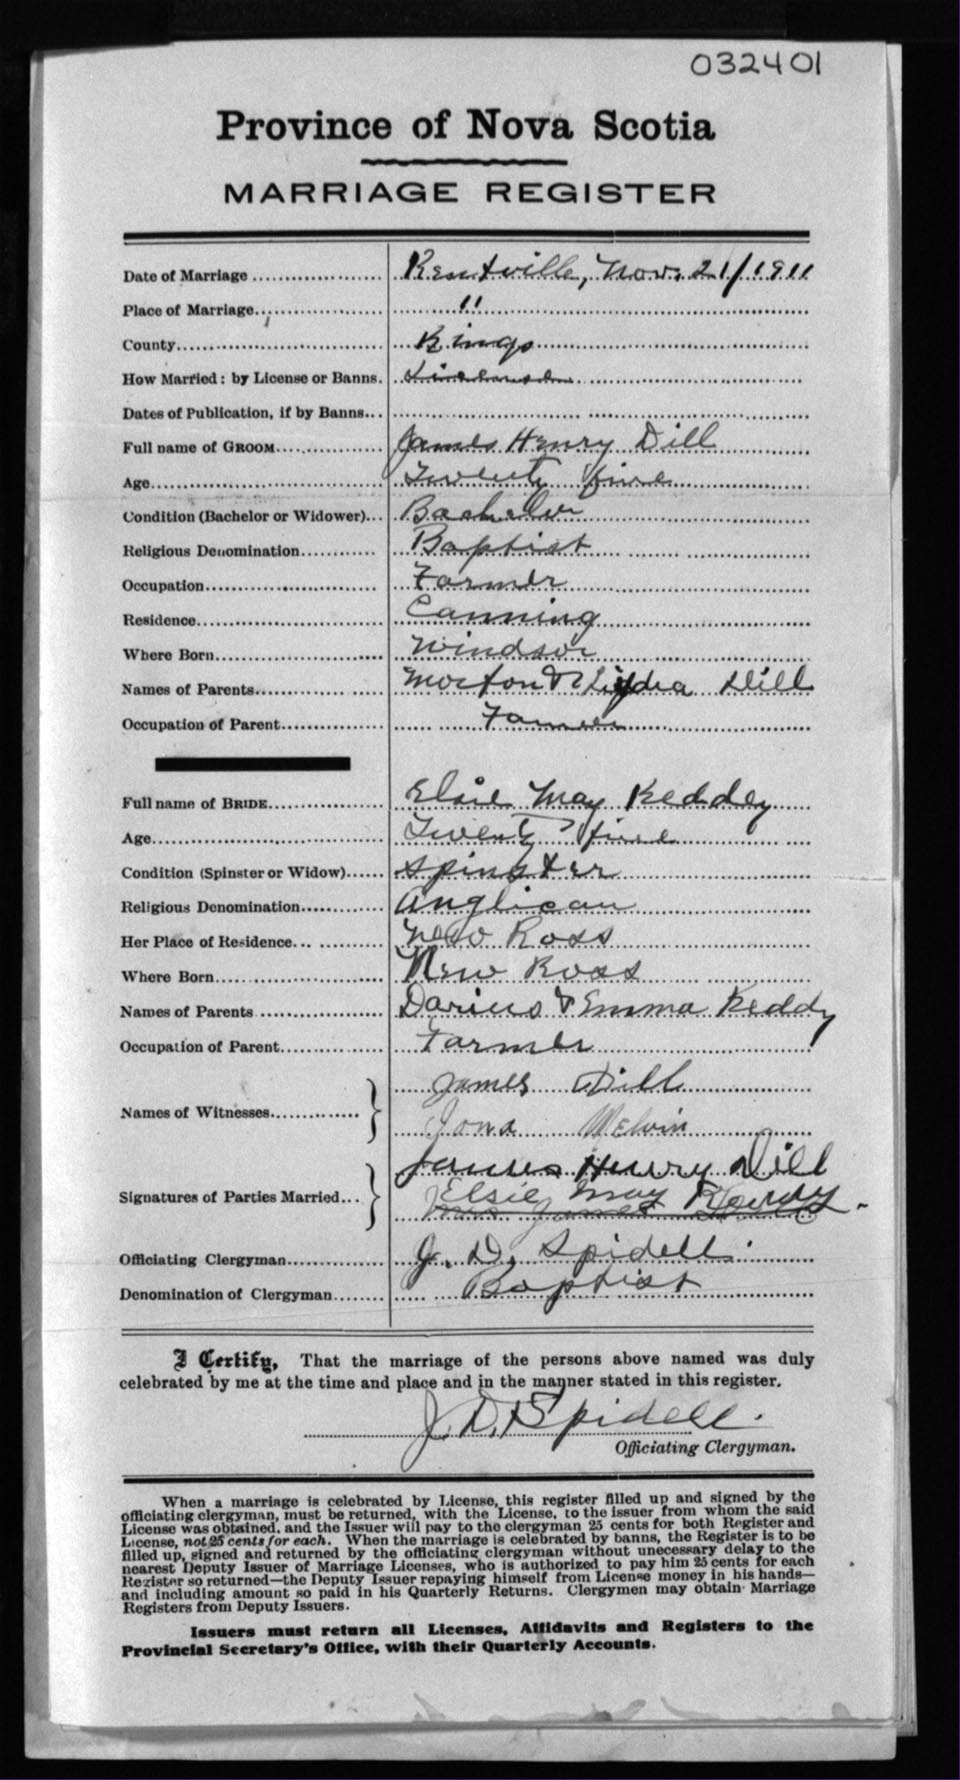 032401
Province of Nova Scotia
MARRIAGE REGISTER
Date of Marriage Kentville, Nov. 21/1911
Place of Marriage "
County Kings
How Married: by License or Banns. License
Dates of Publication, if by Banns...
Full name of GROOM James Henry Dill
Age Twenty five
Condition (Bachelor or Widower)... Bachelor
Religious Denomination Baptist
Occupation Farmer
Residence Canning
Where Born Windsor
Names of Parents Morton & Lydia Dill
Occupation of Parent Farmer
Full name of BRIDE Elsie May Keddey
Age Twenty five
Condition (Spinster or Widow) Spinster
Religious Denomination Anglican
Her Place of Residence New Ross
Where Born New Ross
Names of Parents Darius & Emma Keddy
Occupation of Parent Farmer
Names of Witnesses James Dill
Iona Melvin
Signatures of Parties Married James Henry Dill
Elsie May
Mrs James
Officiating Clergyman J. D. Spidell.
Denomination of Clergyman Baptist
I Certify, That the marriage of the persons above named was duly
celebrated by me at the time and place and in the manner stated in this register.
J. D. Spidell.
Officiating Clergyman.
When a marriage is celebrated by License, this register filled up and signed by the
officiating clergyman, must be returned, with the License, to the issuer from whom the said
License was obtained, and the Issuer will pay to the clergyman 25 cents for both Register and
License, not 25 cents for each. When the marriage is celebrated by banns, the Register is to be
filled up, signed and returned by the officiating clergyman without unnecessary delay to the
nearest Deputy Issuer of Marriage Licenses, who is authorized to pay him 25 cents for each
Register so returned—the Deputy Issuer repaying himself from License money in his hands—
and including amount so paid in his Quarterly Returns. Clergymen may obtain Marriage
Registers from Deputy Issuers.
Issuers must return all Licenses, Affidavits and Registers to the
Provincial Secretary's Office, with their Quarterly Accounts.